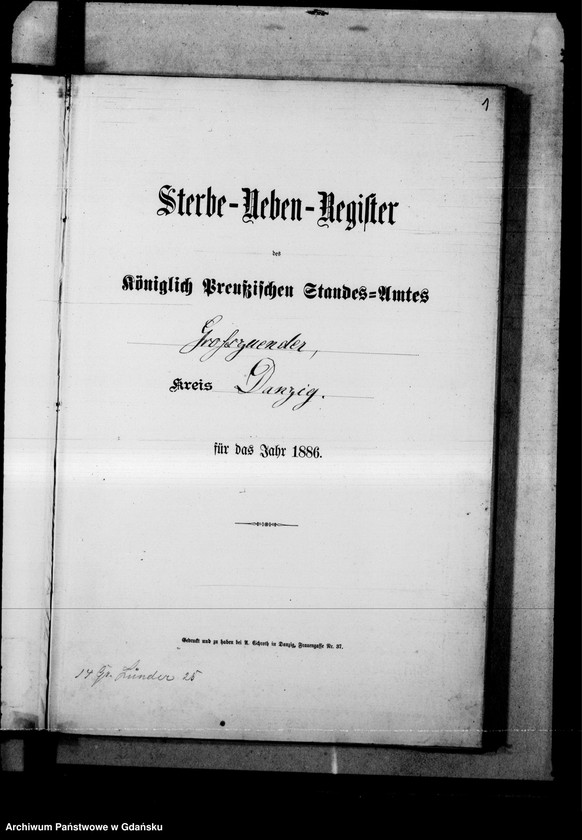 1
Sterbe-Neben-Register
des
Königlich Preußischen Standes-Amtes
Grosszuender,
Kreis Danzig.
für das Jahr 1886.
Gedruckt und zu haben bei A. Schroth in Danzig, Frauengasse Nr. 37.
14 Gr. Zünder 25
Archiwum Państwowe w Gdańsku